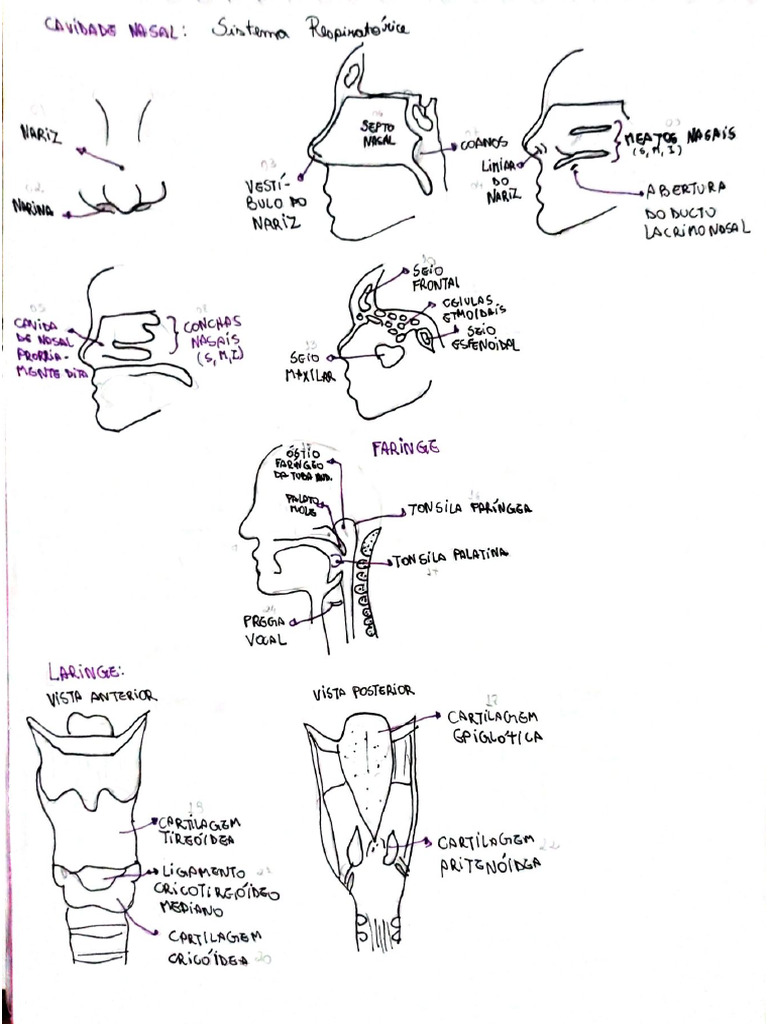 CAVIDADE NASAL: Sistema Respiratório
01
NARIZ
02
NARINA
04
SEPTO
NASAL
03
VESTÍ-
BULO DO
NARIZ
COANOS
LIMIAR
DO
NARIZ
MEATOS NASAIS
(S, M, I)
ABERTURA
DO DUCTO
LACRIMONASAL
05
CAVIDA
DE NASAL
PROPRIA-
MENTE DITA
08
CONCHAS
NASAIS
(S, M, I)
10
SEIO
FRONTAL
CÉLULAS
ETMOIDAIS
SEIO
ESFENOIDAL
13
SEIO
MAXILAR
FARINGE
ÓSTIO
FARÍNGEO
DA TUBA AUD.
PALATO
MOLE
16
TONSILA FARÍNGEA
TONSILA PALATINA
17
24
PREGA
VOCAL
LARINGE:
VISTA ANTERIOR
19
CARTILAGEM
TIREÓIDEA
LIGAMENTO
CRICOTIREÓIDEO
MEDIANO
CARTILAGEM
CRICÓIDEA 20
VISTA POSTERIOR
CARTILAGEM
EPIGLÓTICA
CARTILAGEM
ARITENÓIDEA 22